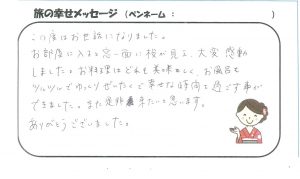 旅の幸せメッセージ (ペンネーム: )
この度はお世話になりました。
お部屋に入ると窓一面に桜が見え、大変感動
しました。お料理はどれも美味しく、お風呂も
ツルツルでゆっくりぜいたくで幸せな時間を過ごす事が
できました。また是非来たいと思います。
ありがとうございました。